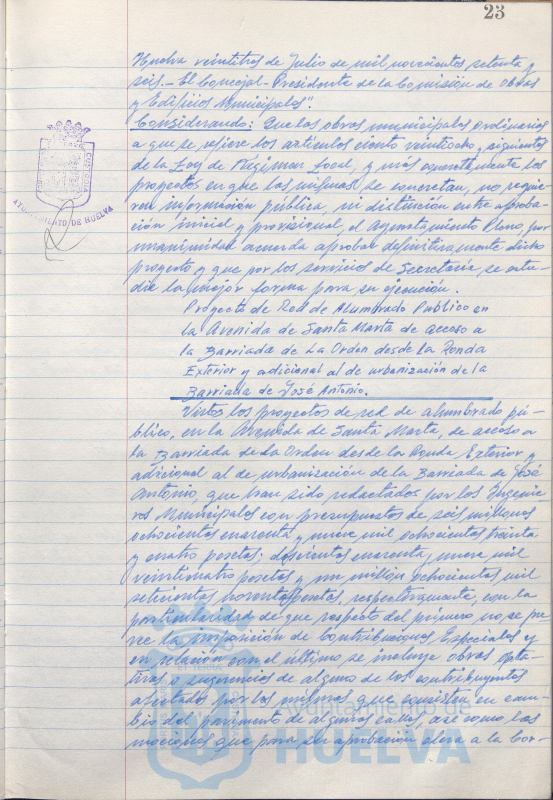 23
Huelva veintitres de Julio de mil novecientos setenta y
seis.- El Concejal-Presidente de la Comisión de Obras
y Edificios Municipales".
Considerando: Que las obras municipales ordinarias
a que se refiere los artículos ciento veintiocho y siguientes
de la Ley de Régimen Local, y más concretamente los
proyectos en que las mismas se concretan, no requie
ren información pública, ni distinción entre aproba-
ción inicial y provisional, el Ayuntamiento Pleno, por
unanimidad acuerda aprobar definitivamente dicho
proyecto y que por los servicios de Secretaría se estu-
die la mejor forma para su ejecución.
Proyecto de Red de Alumbrado Publico en
la Avenida de Santa Marta de acceso a
la Barriada de La Orden desde la Ronda
Exterior y adicional al de urbanización de la
Barriada de José Antonio.
Vistos los proyectos de red de alumbrado pú-
blico, en la Avenida de Santa Marta, de acceso a
la Barriada de La Orden desde la Ronda Exterior y
adicional al de urbanización de la Barriada de José
Antonio, que han sido redactados por los Ingenie
ros Municipales con presupuestos de seis millones
ochocientas cuarenta y nueve mil ochocientas treinta
y cuatro pesetas; doscientas cuarenta y nueve mil
veinticuatro pesetas y un millón ochocientas mil
setecientas noventa pesetas, respectivamente, con la
particularidad de que respecto del primero no se pre
vee la imposición de Contribuciones Especiales y
en relación con el último se incluye obras opta-
tivas o sugerencias de alguno de los contribuyentes
afectados por las mejoras que consisten en cam-
bio del pavimento de algunas calles, así como las
mociones que para su aprobación eleva a la Cor-
AYUNTAMIENTO DE HUELVA
Ayuntamiento de
HUELVA